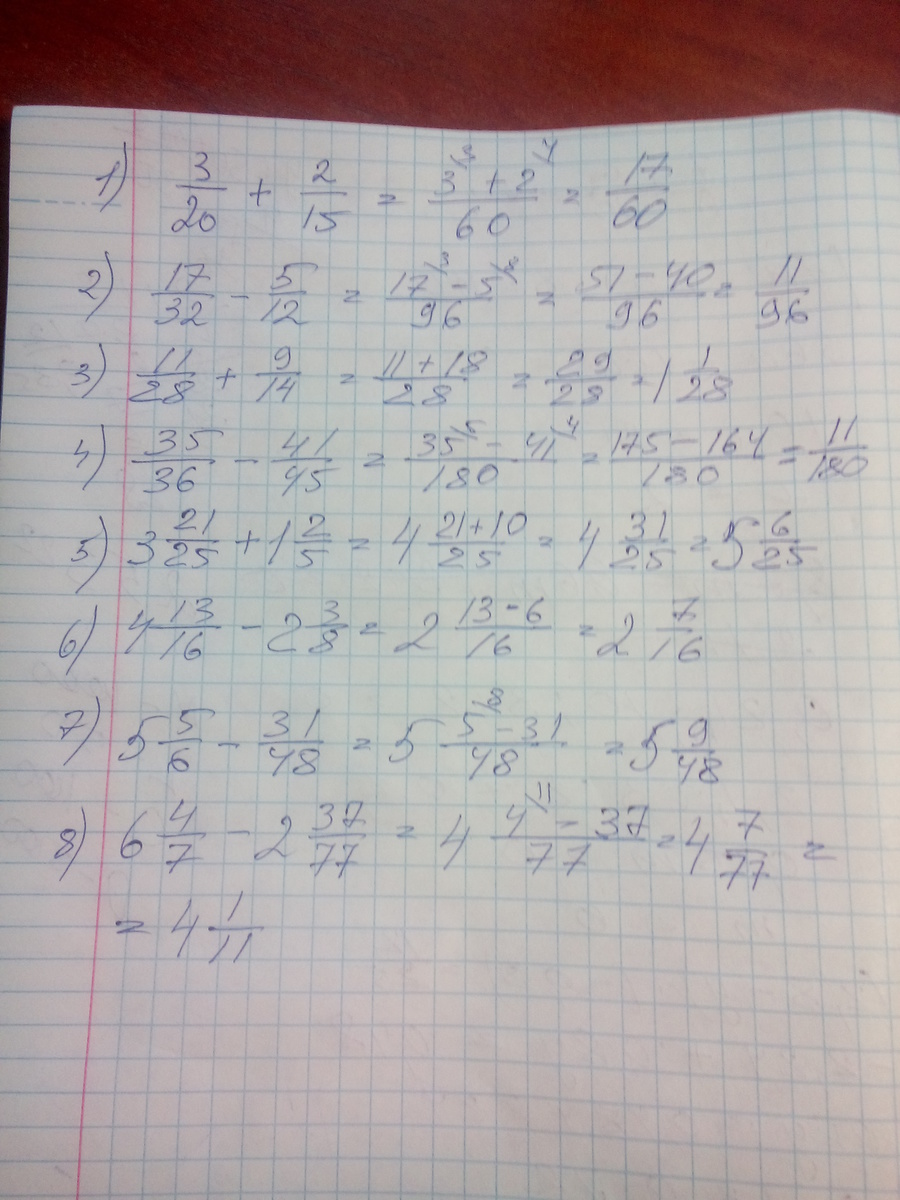 1) 3/20 + 2/15 = (3^/3 + 2^/4)/60 = 17/60
2) 17/32 - 5/12 = (17^/3 - 5^/8)/96 = (51 - 40)/96 = 11/96
3) 11/28 + 9/14 = (11 + 18)/28 = 29/28 = 1 1/28
4) 35/36 - 41/45 = (35^/5 - 41^/4)/180 = (175 - 164)/180 = 11/180
5) 3 21/25 + 1 2/5 = 4 (21+10)/25 = 4 31/25 = 5 6/25
6) 4 13/16 - 2 3/8 = 2 (13-6)/16 = 2 7/16
7) 5 5/6 - 31/48 = 5 (5^/8 - 31)/48 = 5 9/48
8) 6 4/7 - 2 37/77 = 4 (4^/11 - 37)/77 = 4 7/77 =
= 4 1/11